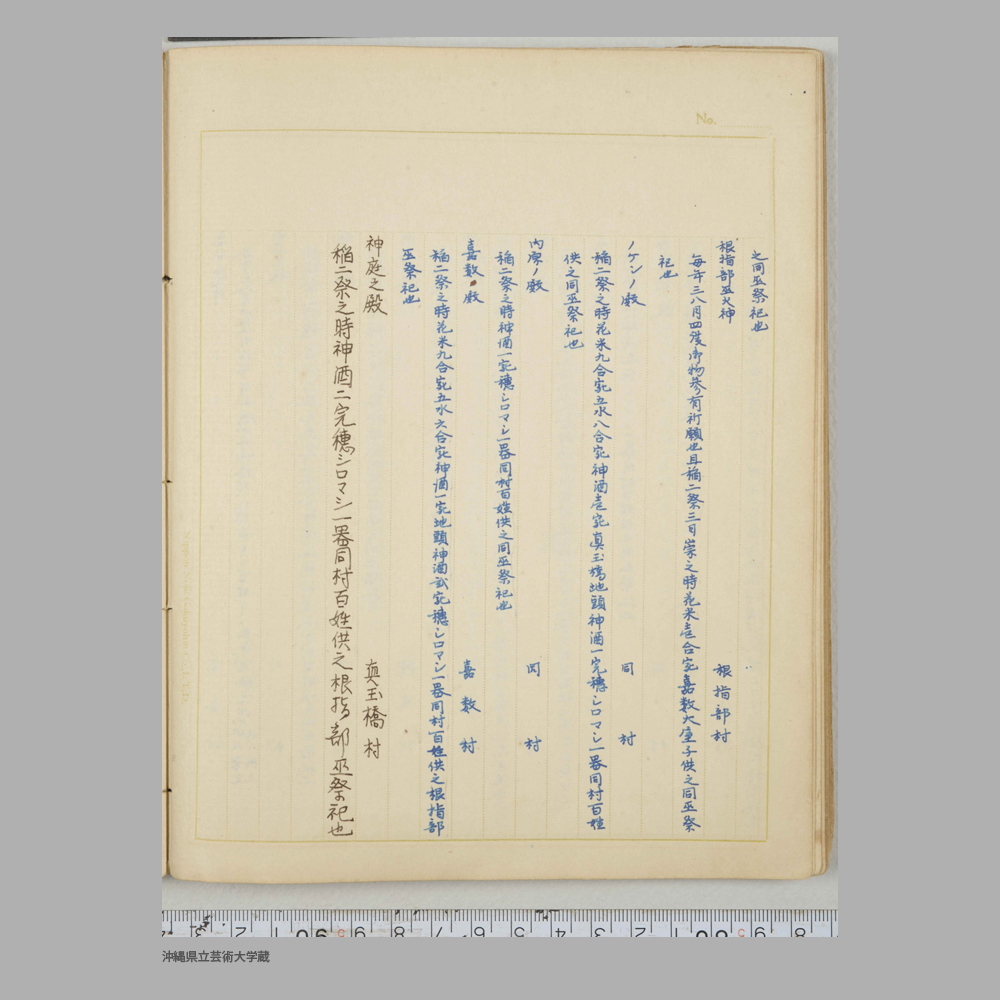 No.
之同巫祭祀也
根指部巫火神
根指部村
毎年三八月四度御物参有祈願也且稲二祭三日崇之時花米壱合宛嘉数大屋子供之同巫祭
祀也
ノケンノ殿
同村
稲二祭之時花米九合宛五水八合宛神酒壱宛真玉橋地頭神酒一宛穂シロマシ一器同村百姓
供之同巫祭祀也
内原ノ殿
同村
稲二祭之時神酒一宛穂シロマシ一器同村百姓供之同巫祭祀也
嘉数ノ殿
嘉数村
稲二祭之時花米九合宛五水六合宛神酒一宛地頭神酒弐宛穂シロマシ一器同村百姓供之根指部
巫祭祀也
神庭之殿
真玉橋村
稲二祭之時神酒二完穂シロマシ一器同村百姓供之根指部巫祭祀也
沖縄県立芸術大学蔵